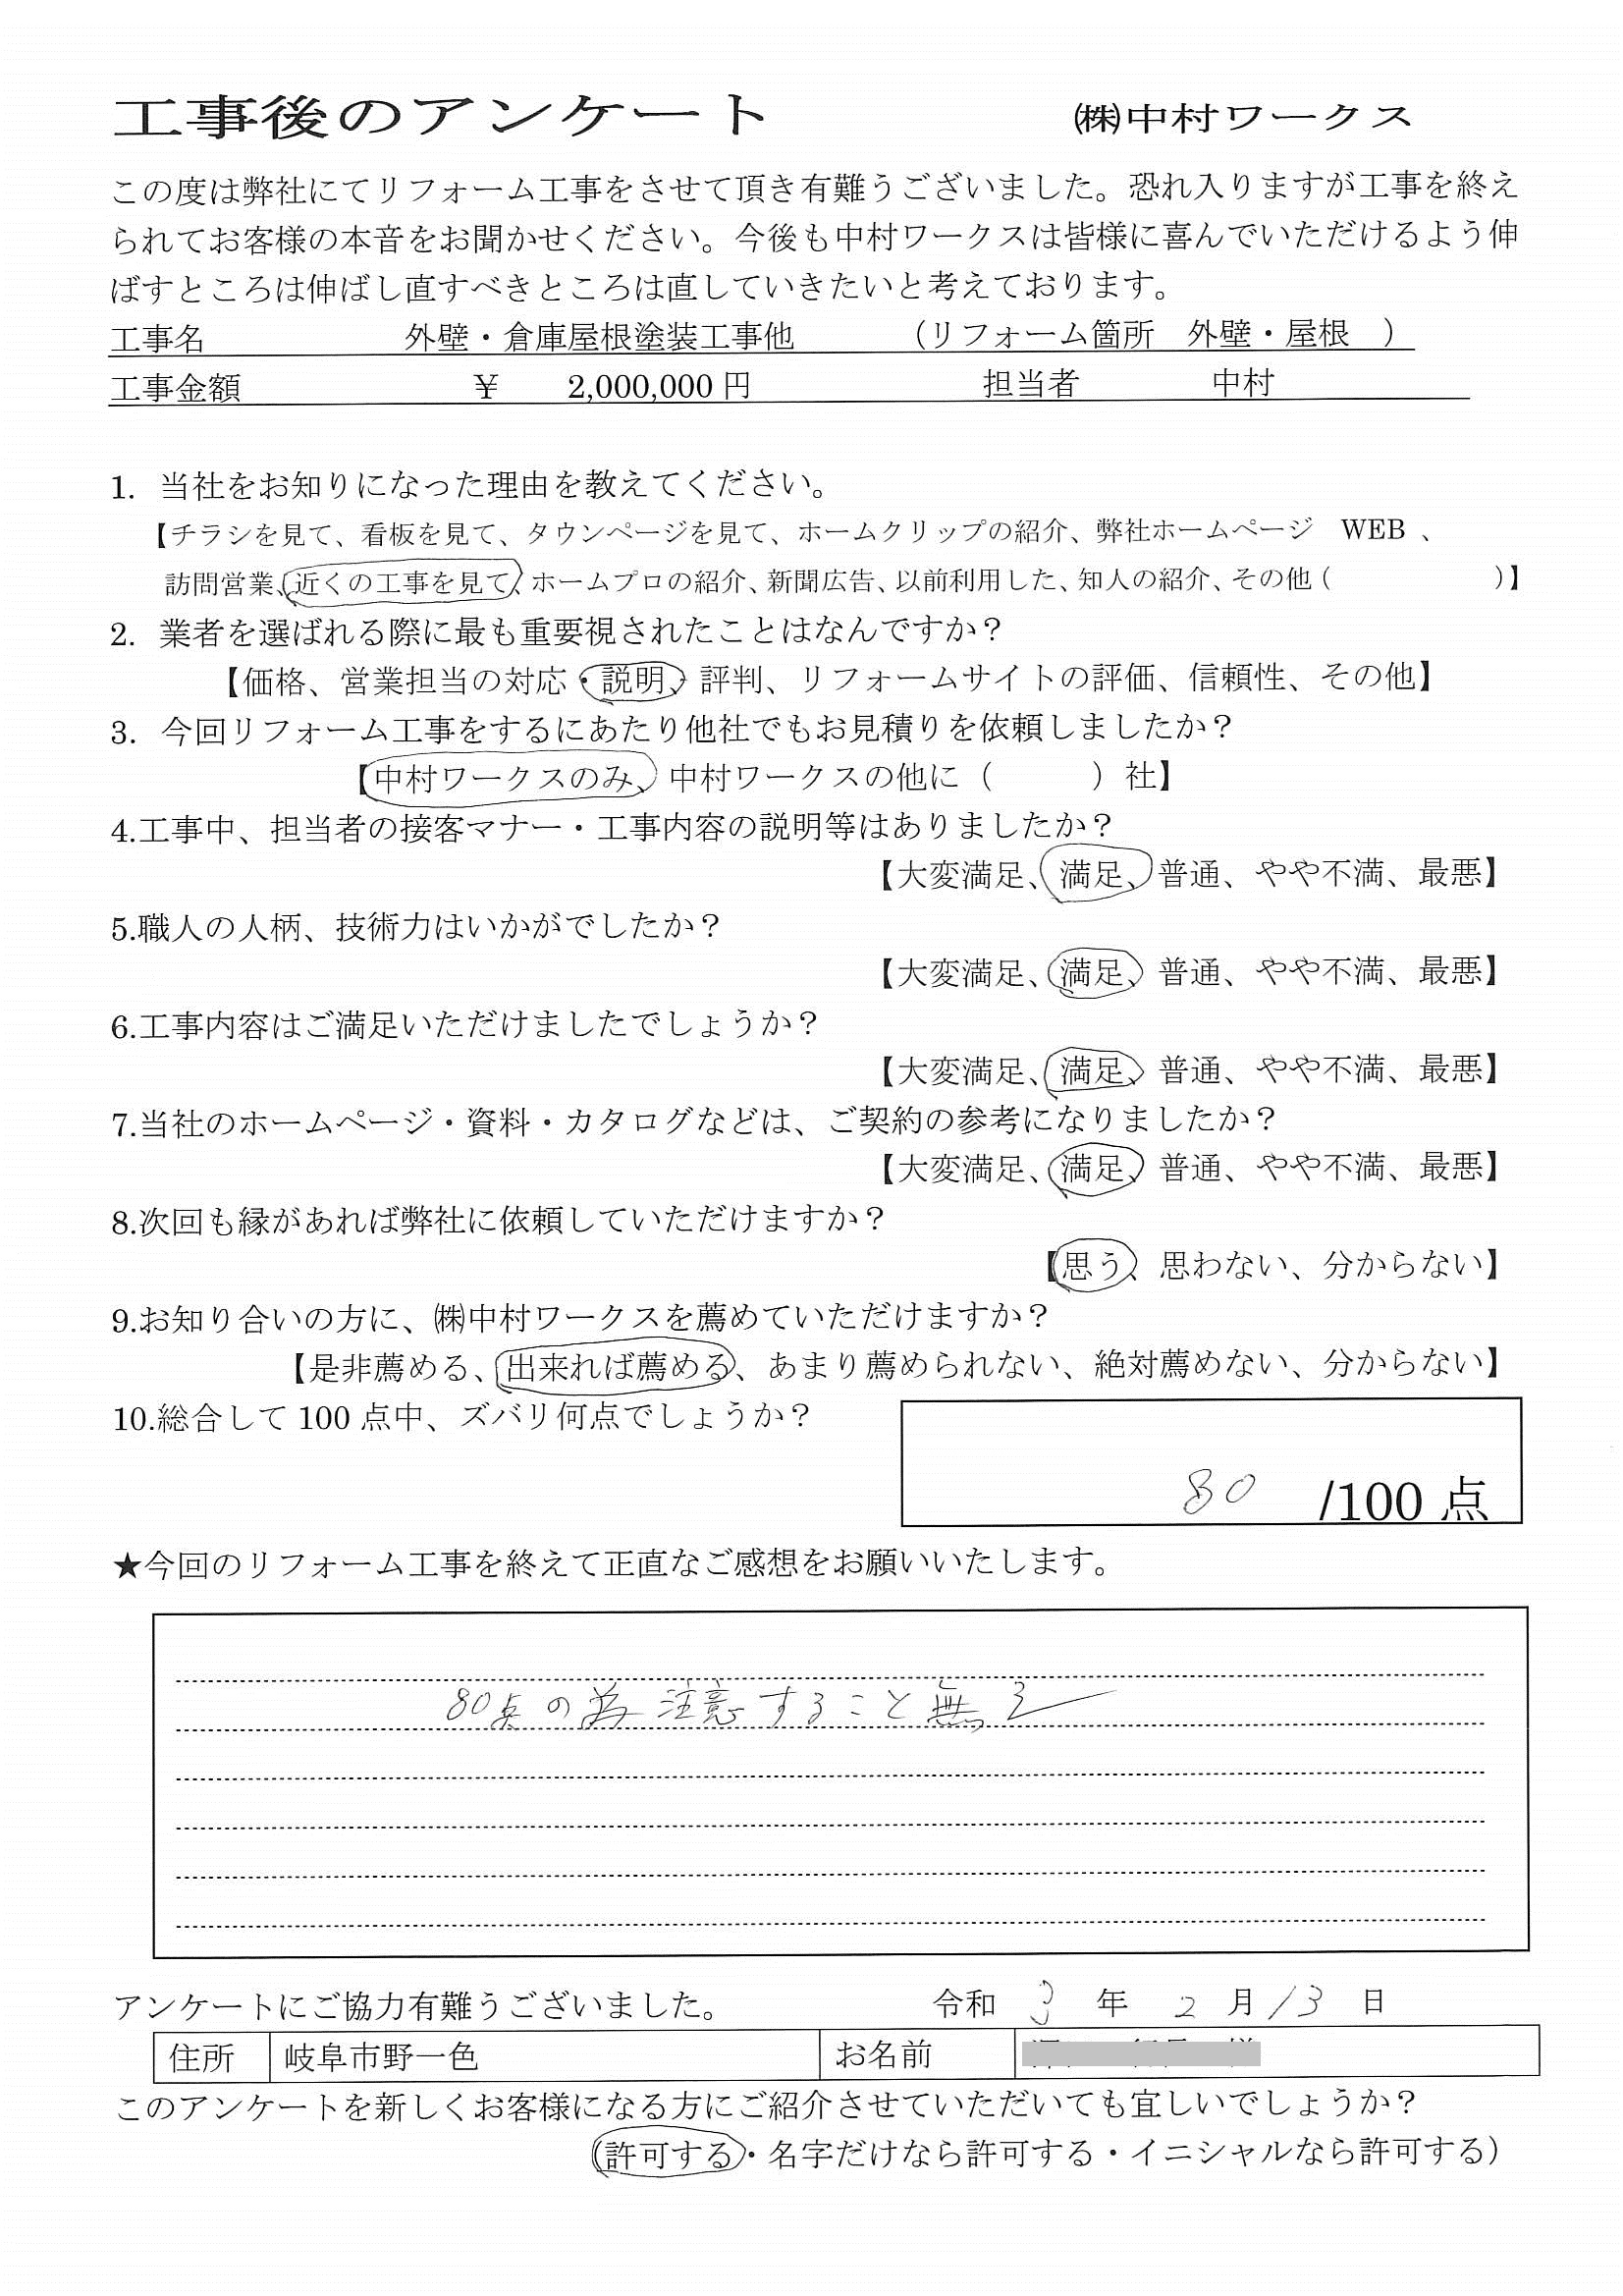 工事後のアンケート ㈱中村ワークス
この度は弊社にてリフォーム工事をさせて頂き有難うございました。恐れ入りますが工事を終え
られてお客様の本音をお聞かせください。今後も中村ワークスは皆様に喜んでいただけるよう伸
ばすところは伸ばし直すべきところは直していきたいと考えております。
工事名 外壁・倉庫屋根塗装工事他 （リフォーム箇所 外壁・屋根 ）
工事金額 ￥ 2,000,000 円 担当者 中村
1. 当社をお知りになった理由を教えてください。
【チラシを見て、看板を見て、タウンページを見て、ホームクリップの紹介、弊社ホームページ WEB 、
訪問営業、近くの工事を見て、ホームプロの紹介、新聞広告、以前利用した、知人の紹介、その他（ ）】
2. 業者を選ばれる際に最も重要視されたことはなんですか？
【価格、営業担当の対応・説明、評判、リフォームサイトの評価、信頼性、その他】
3. 今回リフォーム工事をするにあたり他社でもお見積りを依頼しましたか？
【中村ワークスのみ、中村ワークスの他に（ ）社】
4.工事中、担当者の接客マナー・工事内容の説明等はありましたか？
【大変満足、満足、普通、やや不満、最悪】
5.職人の人柄、技術力はいかがでしたか？
【大変満足、満足、普通、やや不満、最悪】
6.工事内容はご満足いただけましたでしょうか？
【大変満足、満足、普通、やや不満、最悪】
7.当社のホームページ・資料・カタログなどは、ご契約の参考になりましたか？
【大変満足、満足、普通、やや不満、最悪】
8.次回も縁があれば弊社に依頼していただけますか？
【思う、思わない、分からない】
9.お知り合いの方に、㈱中村ワークスを薦めていただけますか？
【是非薦める、出来れば薦める、あまり薦められない、絶対薦めない、分からない】
10.総合して 100 点中、ズバリ何点でしょうか？
80 /100 点
★今回のリフォーム工事を終えて正直なご感想をお願いいたします。
80点の為 注意すること無
アンケートにご協力有難うございました。 令和 3 年 2 月 13 日
住所 岐阜市野一色 お名前
このアンケートを新しくお客様になる方にご紹介させていただいても宜しいでしょうか？
（許可する・名字だけなら許可する・イニシャルなら許可する）